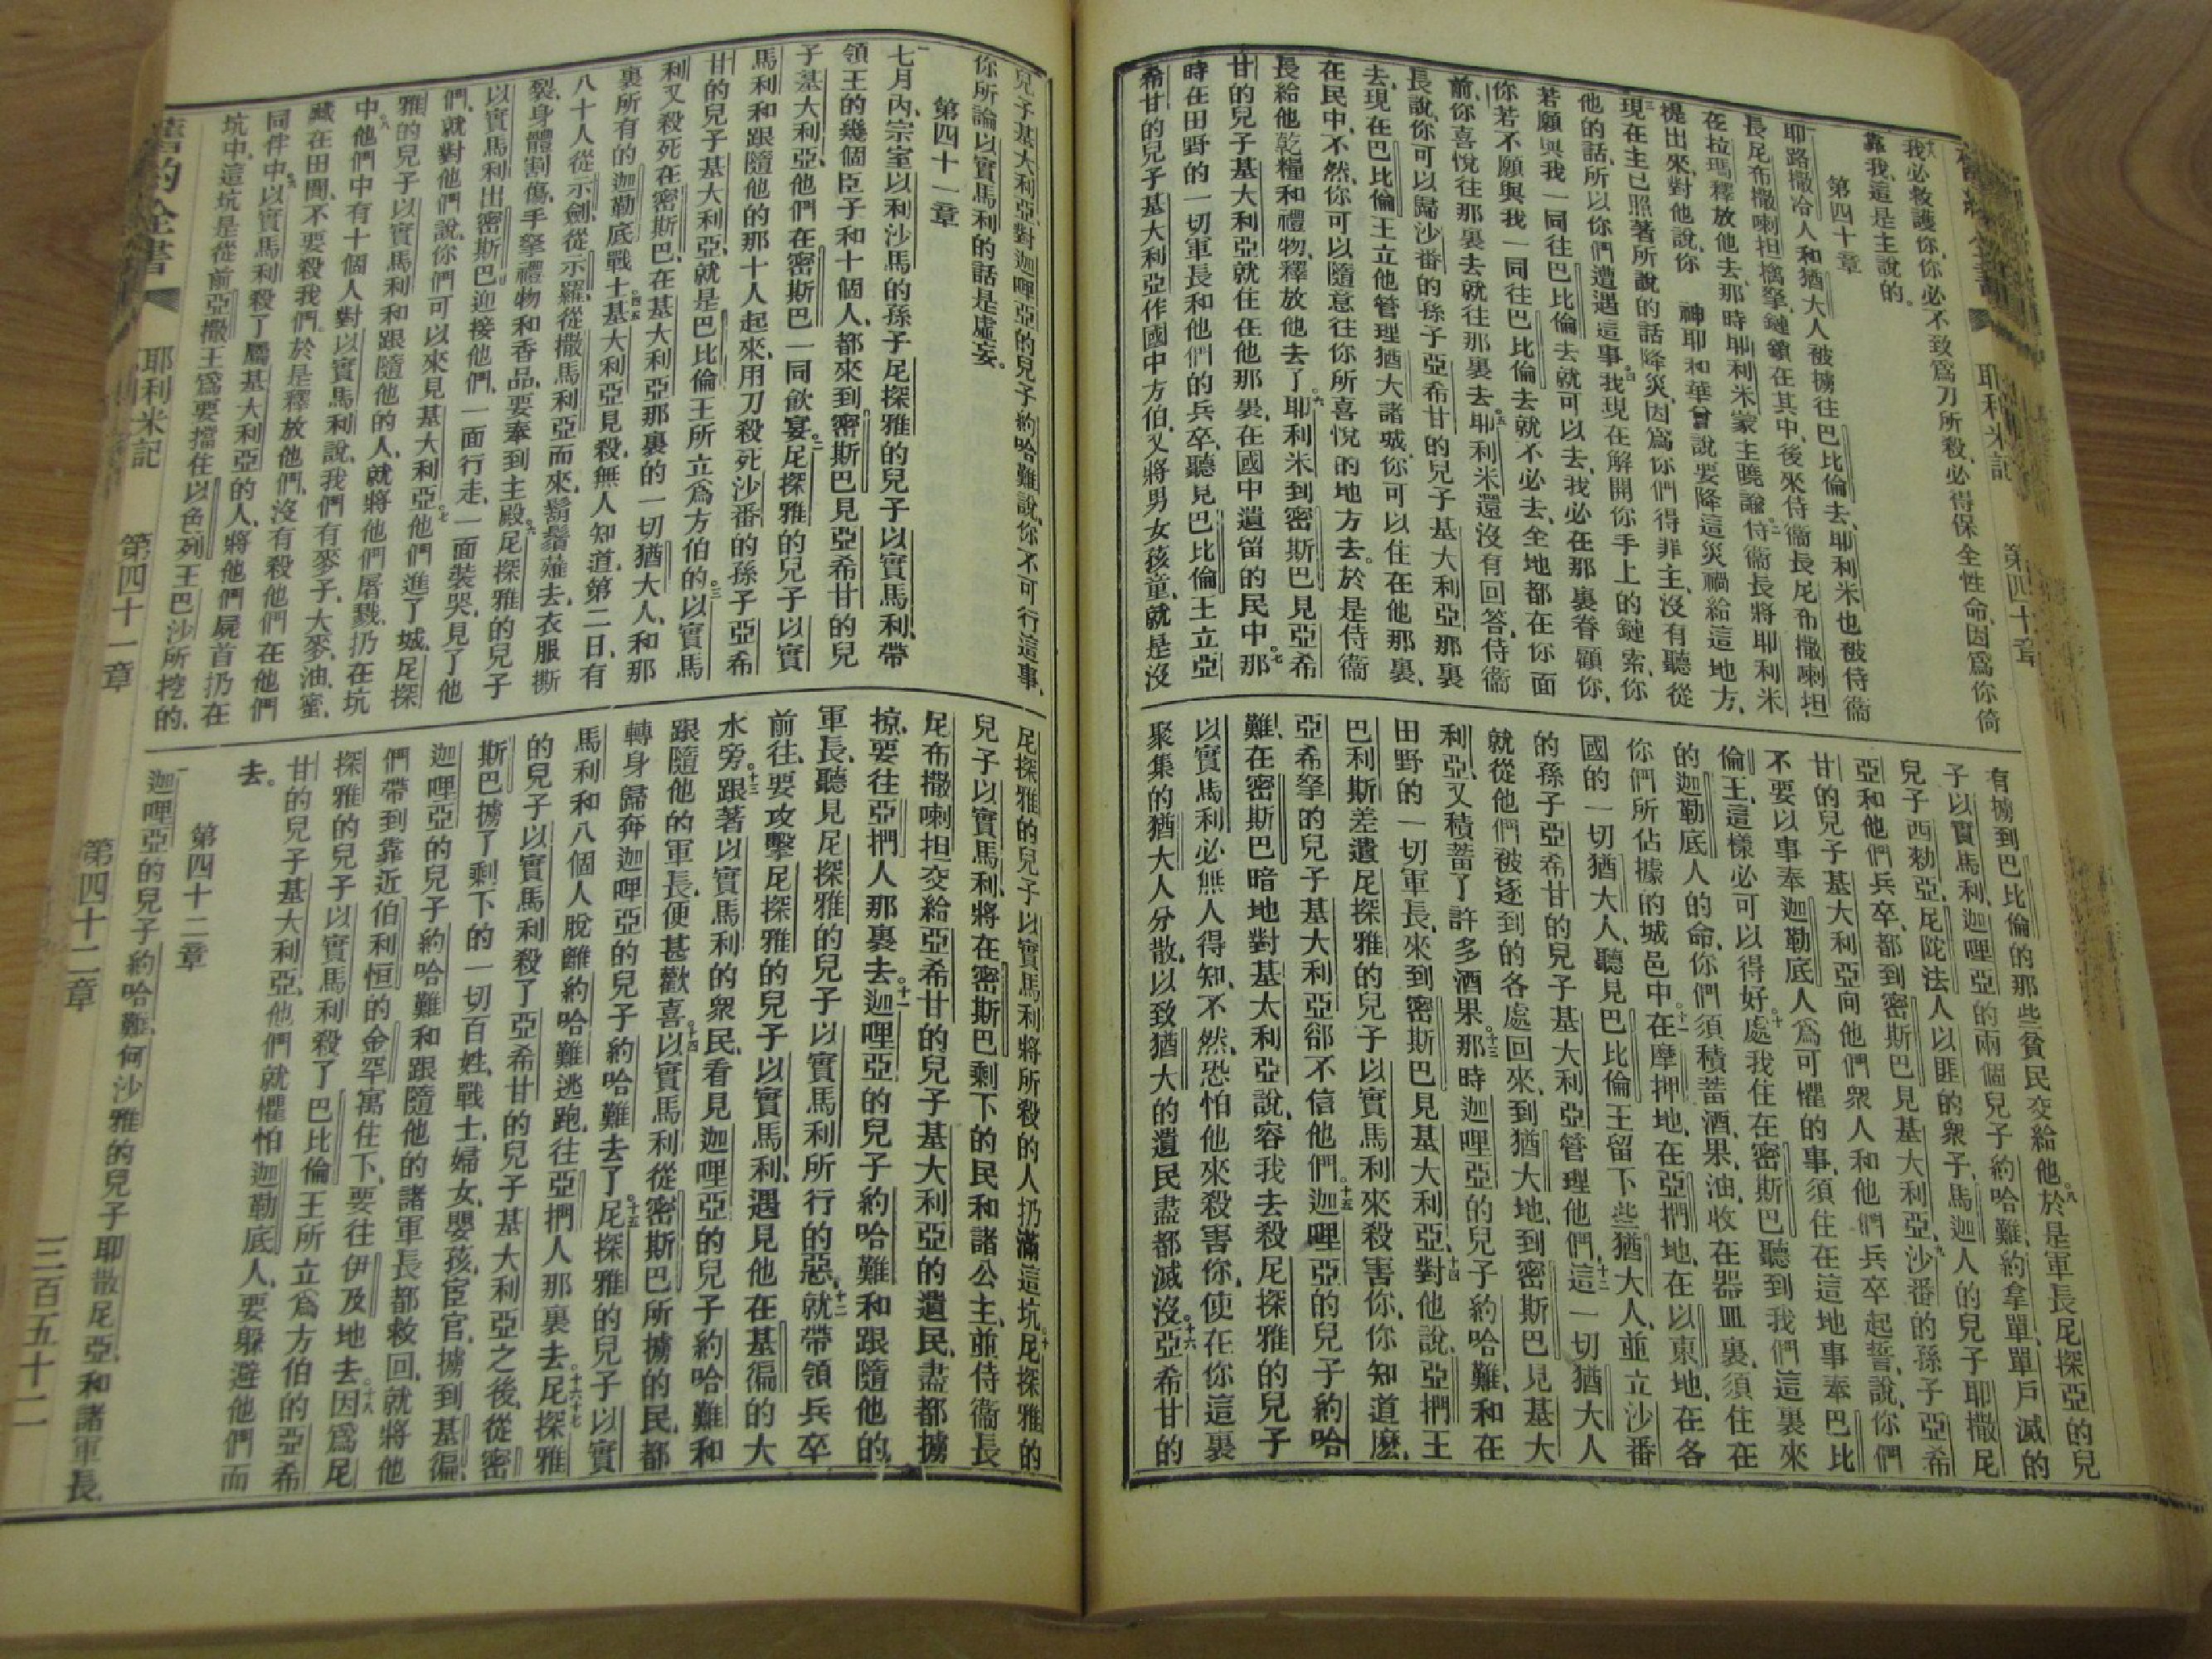 耶利米記
第四十章
我必救護你、你必不致爲刀所殺、必得保全性命、因爲你倚
靠我、這是主說的。
第四十章
耶路撒冷人和猶大人被擄往巴比倫去、耶利米也被侍衞
長尼布撒喇坦擒拏、鏈鎖在其中、後來侍衞長尼布撒喇坦
在拉瑪釋放他去、那時耶利米蒙主曉諭。二侍衞長將耶利米
提出來、對他說、你 神耶和華曾說要降這災禍給這地方、
三現在主已照著所說的話降災、因爲你們得罪主、沒有聽從
他的話、所以你們遭遇這事。四我現在解開你手上的鏈索、你
若願與我一同往巴比倫去就可以去、我必在那裏眷顧你、
你若不願與我一同往巴比倫去就不必去、全地都在你面
前、你喜悅往那裏去就往那裏去。五耶利米還沒有回答、侍衞
長說、你可以歸沙番的孫子亞希甘的兒子基大利亞那裏
去、現在巴比倫王立他管理猶大諸城、你可以住在他那裏、
在民中、不然、你可以隨意往你所喜悅的地方去。於是侍衞
長給他乾糧和禮物、釋放他去了。六耶利米到密斯巴見亞希
甘的兒子基大利亞就住在他那裏、在國中遺留的民中。七那
時在田野的一切軍長和他們的兵卒、聽見巴比倫王立亞
希甘的兒子基大利亞作國中方伯、又將男女孩童、就是沒
有擄到巴比倫的那些貧民交給他。八於是軍長尼探亞的兒
子以實馬利、迦哩亞的兩個兒子約哈難、約拿單、單戶滅的
兒子西勑亞、尼陀法人以匪的衆子、馬迦人的兒子耶撒尼
亞和他們兵卒、都到密斯巴見基大利亞。九沙番的孫子亞希
甘的兒子基大利亞向他們衆人和他們兵卒起誓、說、你們
不要以事奉迦勒底人爲可懼的事、須住在這地事奉巴比
倫王、這樣必可以得好處。十我住在密斯巴聽到我們這裏來
的迦勒底人的命、你們須積蓄酒、果、油、收在器皿裏、須住在
你們所佔據的城邑中。十一在摩押地、在亞捫地、在以東地、在各
國的一切猶大人、聽見巴比倫王留下些猶大人、並立沙番
的孫子亞希甘的兒子基大利亞管理他們、十二這一切猶大人
就從他們被逐到的各處回來、到猶大地、到密斯巴見基大
利亞、又積蓄了許多酒果。十三那時迦哩亞的兒子約哈難、和在
田野的一切軍長、來到密斯巴見基大利亞、十四對他說、亞捫王
巴利斯差遣尼探雅的兒子以實馬利來殺害你、你知道麽、
亞希拏的兒子基大利亞卻不信他們。十五迦哩亞的兒子約哈
難、在密斯巴暗地對基大利亞說、容我去殺尼探雅的兒子
以實馬利必無人得知、不然、恐怕他來殺害你、使在你這裏
聚集的猶大人分散、以致猶大的遺民盡都滅沒。十六亞希甘的
兒子基大利亞、對迦哩亞的兒子約哈難說、你不可行這事、
你所論以實馬利的話是虛妄。
第四十一章
七月內、宗室以利沙馬的孫子尼探雅的兒子以實馬利、帶
領王的幾個臣子和十個人、都來到密斯巴見亞希甘的兒
子基大利亞、他們在密斯巴一同飲宴。二尼探雅的兒子以實
馬利和跟隨他的那十人起來、用刀殺死沙番的孫子亞希
甘的兒子基大利亞、就是巴比倫王所立爲方伯的。三以實馬
利又殺死在密斯巴、在基大利亞那裏的一切猶大人、和那
裏所有的迦勒底戰士。四五基大利亞見殺、無人知道、第二日、有
八十人從示劍、從示羅、從撒馬利亞而來、鬍鬚薙去、衣服撕
裂、身體割傷、手拏禮物和香品、要奉到主殿。六尼探雅的兒子
以實馬利出密斯巴迎接他們、一面行走、一面裝哭、見了他
們、就對他們說、你們可以來見基大利亞。七他們進了城、尼探
雅的兒子以實馬利和跟隨他的人、就將他們屠戮、扔在坑
中。八他們中有十個人對以實馬利說、我們有麥子、大麥、油、蜜、
藏在田間、不要殺我們。於是釋放他們、沒有殺他們在他們
同伴中。九以實馬利殺了屬基大利亞的人、將他們屍首扔在
坑中、這坑是從前亞撒王爲要擋住以色列王巴沙所挖的、
尼探雅的兒子以實馬利將所殺的人扔滿這坑。十尼探雅的
兒子以實馬利、將在密斯巴剩下的民和諸公主、並侍衞長
尼布撒喇担交給亞希甘的兒子基大利亞的遺民、盡都擄
掠、要往亞捫人那裏去。十一迦哩亞的兒子約哈難和跟隨他的
軍長、聽見尼探雅的兒子以實馬利所行的惡、十二就帶領兵卒
前往、要攻擊尼探雅的兒子以實馬利、遇見他在基徧的大
水旁。十三跟著以實馬利的衆民、看見迦哩亞的兒子約哈難和
跟隨他的軍長、便甚歡喜。十四以實馬利從密斯巴所擄的民、都
轉身歸奔迦哩亞的兒子約哈難去了。十五尼探雅的兒子以實
馬利和八個人脫離約哈難逃跑、往亞捫人那裏去。十六十七尼探雅
的兒子以實馬利殺了亞希甘的兒子基大利亞之後、從密
斯巴擄了剩下的一切百姓、戰士、婦女、嬰孩、宦官、擄到基徧、
迦哩亞的兒子約哈難和跟隨他的諸軍長都救回、就將他
們帶到靠近伯利恒的金罕寓住下、要往伊及地去。十八因爲尼
探雅的兒子以實馬利殺了巴比倫王所立爲方伯的亞希
甘的兒子基大利亞、他們就懼怕迦勒底人、要躱避他們而
去。
第四十二章
迦哩亞的兒子約哈難、何沙雅的兒子耶散尼亞、和諸軍長、
舊約全書
耶利米記
第四十一章
第四十二章
三百五十二